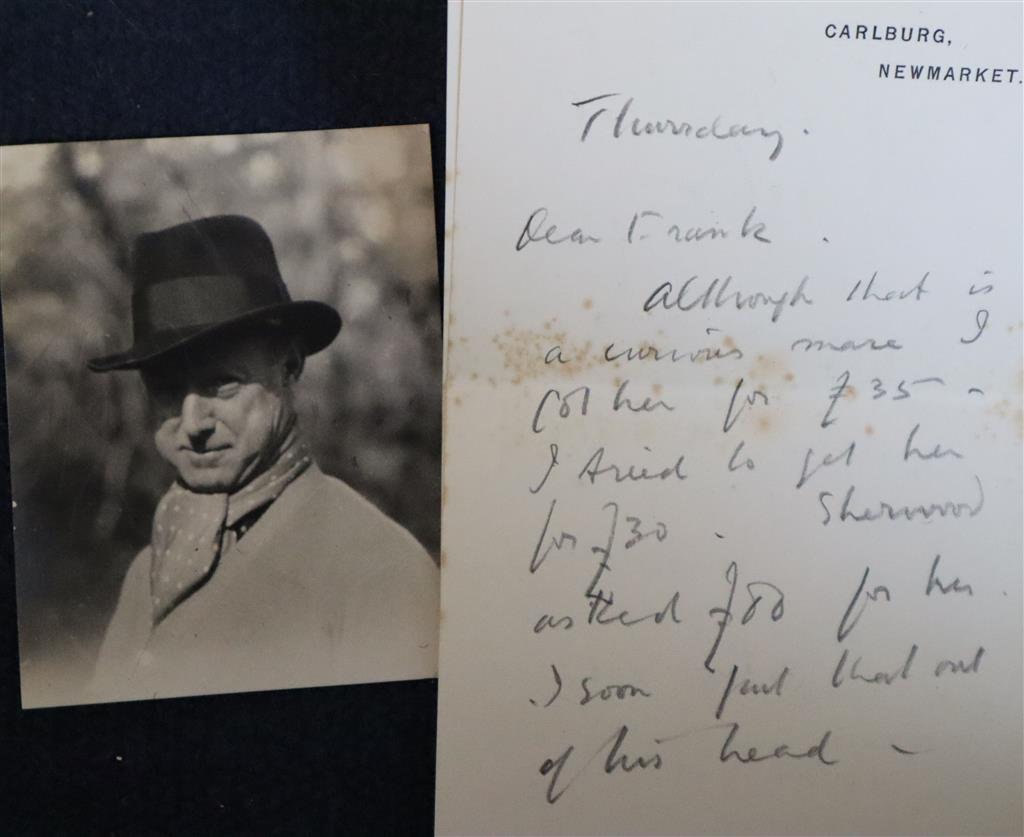 CARLBURG,
NEWMARKET.
Thursday.
Dear Frank.
Although that is
a curious mare I
got her for £35 -
I tried to get her
for £30. Sherwood
asked £80 for her.
I soon put that out
of his head -